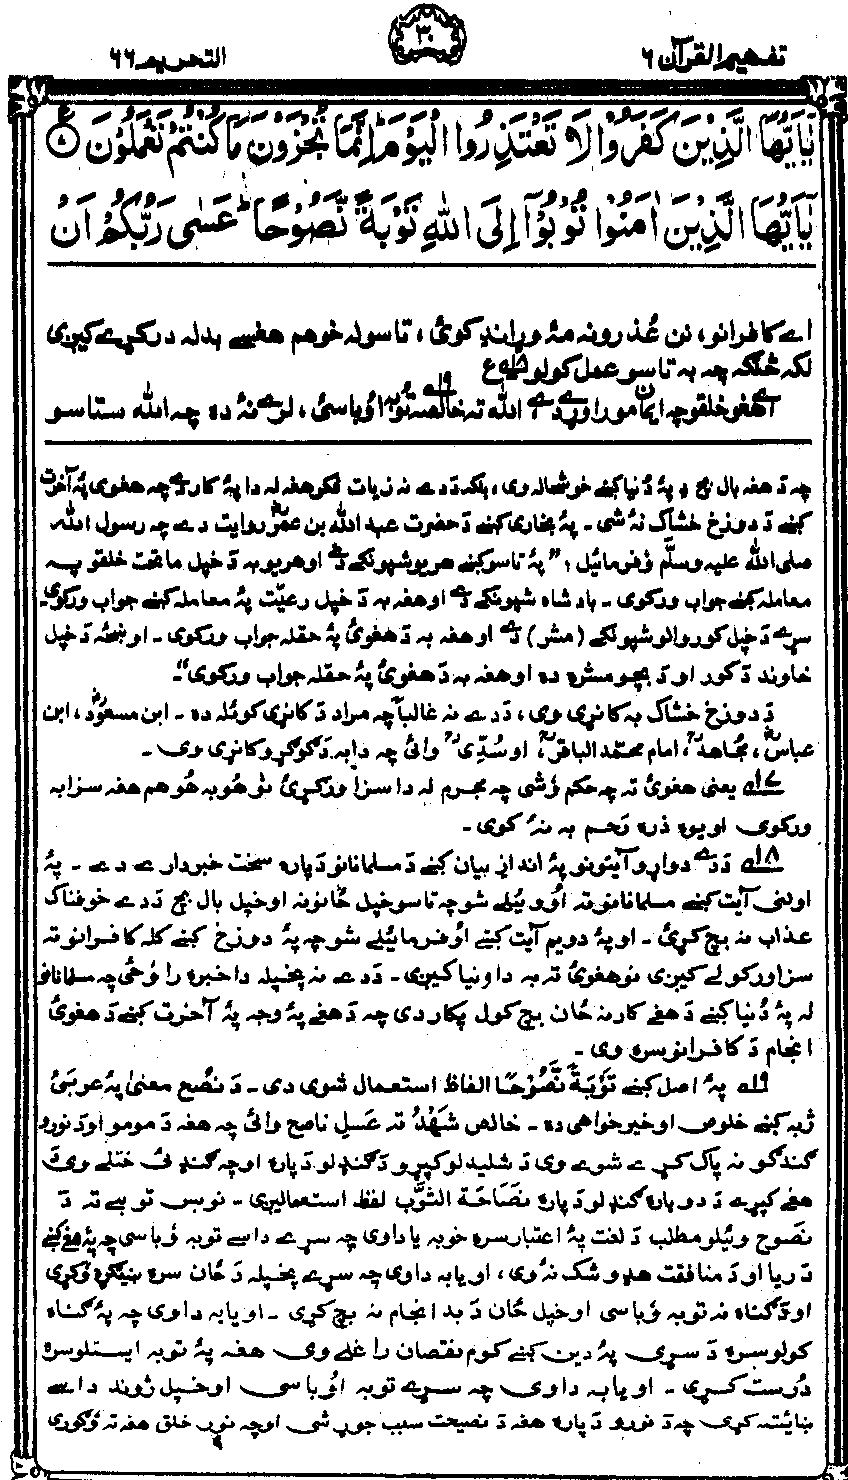 تفهیم القرآن ۶
۳۰
التحریم ۶۶
يٰۤاَيُّهَا الَّذِيْنَ كَفَرُوْا لَا تَعْتَذِرُوا الْيَوْمَ ؕ اِنَّمَا تُجْزَوْنَ مَا كُنْتُمْ تَعْمَلُوْنَ ﴿۷﴾ ع
يٰۤاَيُّهَا الَّذِيْنَ اٰمَنُوْا تُوْبُوْۤا اِلَى اللّٰهِ تَوْبَةً نَّصُوْحًا ؕ عَسٰى رَبُّكُمْ اَنْ
اے کافرانو، نن عُذرونه مۀ وړاندې کوئ، تاسو له خو هم هغسې بدله درکړے کیږی
لکه څنګه چه به تاسو عمل کولو ۱۸ ع
اے هغو خلقو چه ایمان مو راوړے دے، الله ته خالصه توبه اوباسئ، ۱۹ لرے نۀ ده چه الله ستاسو
چه دَ هغه بال بچ دِ پۀ دُنیا کښے خوشحاله وی، بلکه دَدے نه زیات فکر هغه له دا پۀ کار دے چه هغوی پۀ آخرت
کښے دَ دوزخ خشاک نۀ شی۔ پۀ بخاری کښے دَ حضرت عبد الله بن عمرؓ روایت دے چه رسول الله
صلی الله علیه وسلّم وُفرمائیل: "پۀ تاسو کښے هر یو شپونکے دے او هر یو به دَ خپل ماتحت خلقو په
معامله کښے جواب ورکوی۔ بادشاه شپونکے دے او هغه به دَ خپل رعیّت پۀ معامله کښے جواب ورکوی۔
سړے دَ خپل کور والو شپونکے (مشر) دے او هغه به دَ هغوئ پۀ حقله جواب ورکوی۔ او ښځه دَ خپل
خاوند دَ کور او دَ بچو مشره ده او هغه به دَ هغوئ پۀ حقله جواب ورکوی"۔
دَ دوزخ خشاک به کاڼی وی، دَدے نه غالباً چه مراد دَ کاڼی کوئله ده۔ ابن مسعودؓ، ابن
عباسؓ، مجاهدؒ، امام محمّد الباقرؒ، او سُدّیؒ وائی چه دا به دَ ګوګړو کاڼی وی۔
۱۷ یعنی هغوئ ته چه حکم وُشی چه مجرم له دا سزا ورکړئ نو هُو به هُو هم هغه سزا به
ورکوی او یوه ذره رحم به نۀ کوی۔
۱۸ دَدے دواړو آیتونو پۀ انداز بیان کښے دَ مسلمانانو دَپاره سخت خبردارے دے۔ پۀ
اولنی آیت کښے مسلمانانو ته اووئیلے شو چه تاسو خپل ځانونه او خپل بال بچ دَدے خوفناک
عذاب نه بچ کړئ۔ او پۀ دویم آیت کښے اوفرمائیلے شو چه پۀ دوزخ کښے کله کافرانو ته
سزا ورکولے کیږی نو هغوئ ته به دا وئیا کیږی۔ دَدے نه پخپله دا خبره را وُځی چه مسلمانانو
له پۀ دُنیا کښے دَ هغے کار نه ځان بچ کول پکار دی چه دَ هغے پۀ وجه پۀ آخرت کښے دَ هغوئ
انجام دَ کافرانو سره وی۔
۱۹ پۀ اصل کښے تَوْبَةً نَّصُوْحًا الفاظ استعمال شوی دی۔ دَ نُصح معنیٰ پۀ عربئ
ژبه کښے خلوص او خیر خواهی ده۔ خالص شهدُ ته عَسلِ ناصح وائی چه هغه دَ مومو او دَ نورو
ګندګو نه پاک کړے شوے وی دَ شلیدلو کپړو دَ ګنډلو دَپاره او چه ګنډ ئ ختلے وی
هغے کپړے دَ دوباره ګنډلو دَپاره نصَاحَة الثّوب لفظ استعمالیږی۔ نو بس توبے ته دَ
نصوح وئیلو مطلب دَ لغت پۀ اعتبار سره خو به یا دا وی چه سړے داسے توبه وُباسی چه پۀ هغے کښے
دَ ریا او دَ منافقت هډو شک نۀ وی، او یا به دا وی چه سړے پخپله دَ ځان سره ښیګړه وُکړی
او دَ ګناه نه توبه وُباسی او خپل ځان دَ بد انجام نه بچ کړی۔ او یا به دا وی چه پۀ ګناه
کولو سره دَ سړی پۀ دین کښے کوم نقصان را غلے وی هغه پۀ توبه ایستلو سره
دُرست کړی۔ او یا به دا وی چه سړے توبه اوباسی او خپل ژوند داسے
ښائسته کړی چه دَ نورو دَپاره هغه دَ نصیحت سبب جوړ شی او چه نور خلق هغه ته وُګوری